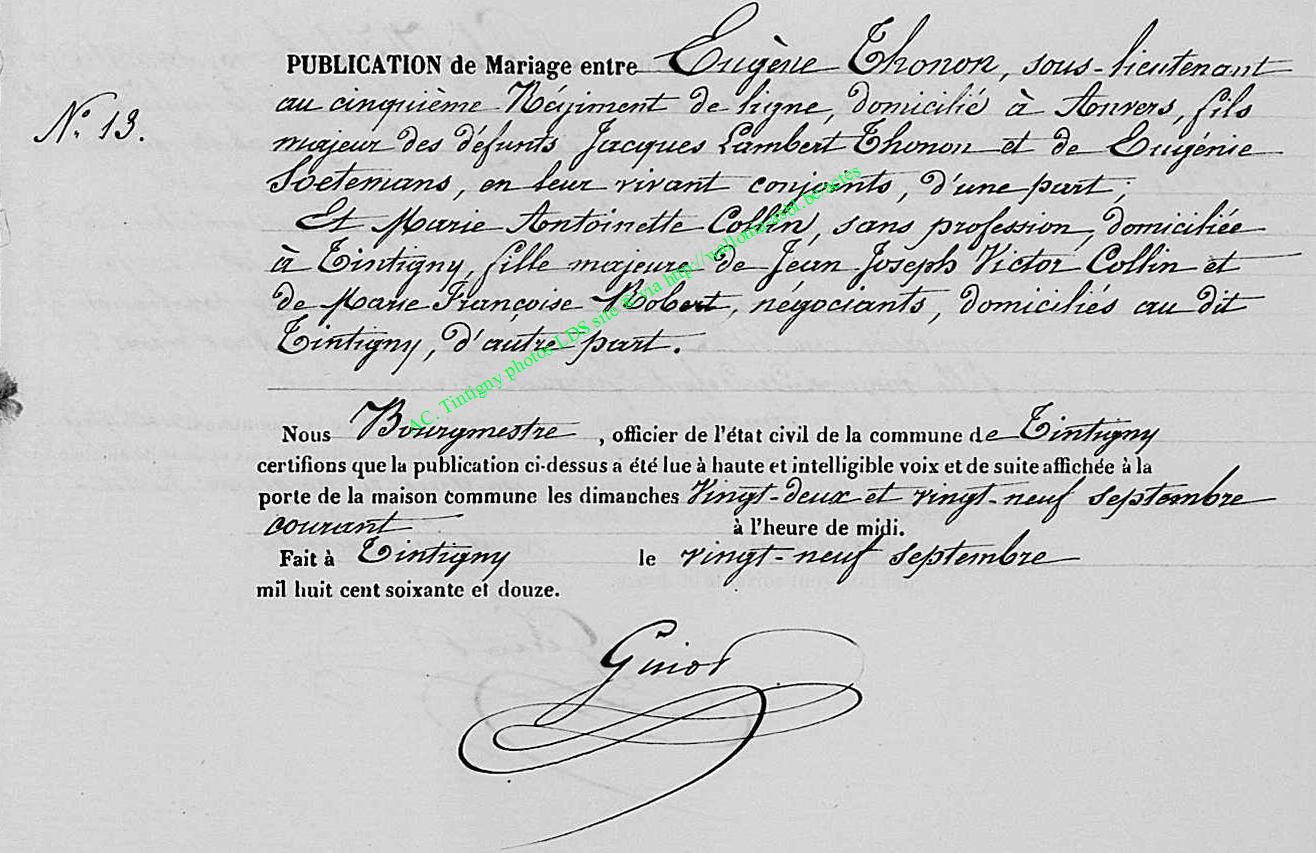 PUBLICATION de Mariage entre Eugène Thonon, sous-lieutenant
N° 13.
au cinquième Régiment de ligne, domicilié à Anvers, fils
majeur des défunts Jacques Lambert Thonon et de Eugénie
Soetemans, en leur vivant conjoints, d'une part;
Et Marie Antoinette Collin, sans profession, domiciliée
à Tintigny, fille majeure de Jean Joseph Victor Collin et
de Marie Françoise Robert, négociants, domiciliés au dit
Tintigny, d'autre part.
AC. Tintigny photos LDS site © via http://wallonica.bbl.be/actes
Nous Bourgmestre, officier de l'état civil de la commune de Tintigny
certifions que la publication ci-dessus a été lue à haute et intelligible voix et de suite affichée à la
porte de la maison commune les dimanches Vingt-deux et vingt-neuf septembre
courant à l'heure de midi.
Fait à Tintigny le vingt-neuf septembre
mil huit cent soixante et douze.
Guiot